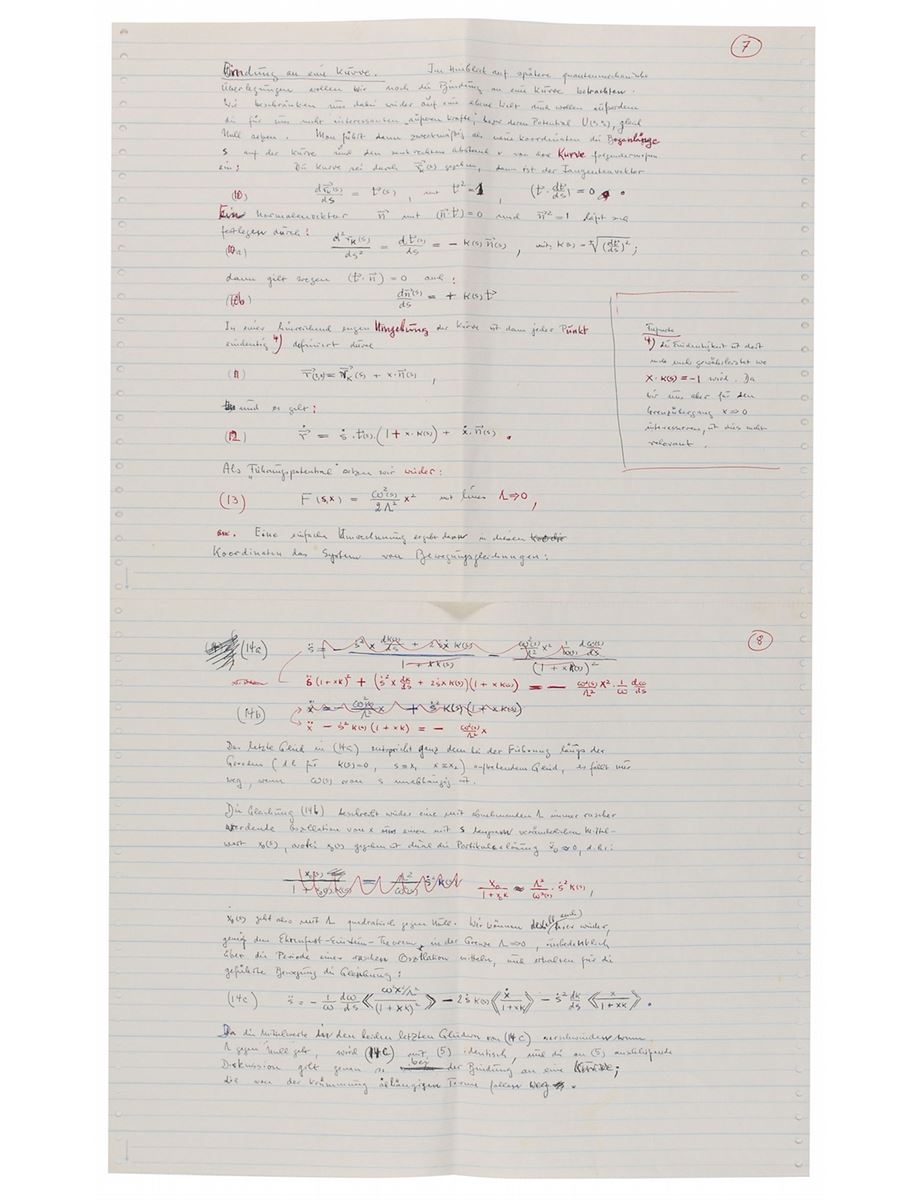 7
Bindung an eine Kurve. Im Hinblick auf spätere quantenmechanische
Überlegungen wollen wir noch die Bindung an eine Kurve betrachten.
Wir beschränken uns dabei wieder auf eine ebene Welt und wollen außerdem
die für uns nicht interessanten äußeren Kräfte, bzw. deren Potential U(), gleich
Null setzen. Man führt dann zweckmäßig als neue Koordinaten die Bogenlänge
s auf der Kurve und den senkrechten Abstand x von der Kurve folgendermaßen
ein: Die Kurve sei durch r⃗(s) gegeben, dann ist der Tangentenvektor
(10) dr⃗(s)/ds = t⃗(s), mit t⃗² = 1, (t⃗·dt⃗/ds) = 0.
Ein Normalenvektor n⃗ mit (n⃗·t⃗) = 0 und n⃗² = 1 läßt sich
festlegen durch:
(10a) d²r⃗ₖ(s)/ds² = dt⃗(s)/ds = − κ(s) n⃗(s), mit κ(s) = √(dt⃗/ds)²;
dann gilt wegen (t⃗·n⃗) = 0 auch:
(10b) dn⃗(s)/ds = + κ(s) t⃗
In einer hinreichend engen Umgebung der Kurve ist dann jeder Punkt
eindeutig 4) definiert durch
(11) r⃗ = r⃗ₖ(s) + x·n⃗(s),
und es gilt:
(12) ṙ⃗ = ṡ·t⃗(s)·(1 + x·κ(s)) + ẋ·n⃗(s).
Fußnote
4) Die Eindeutigkeit ist dort
nicht mehr gewährleistet wo
x·κ(s) = −1 wird. Da
wir uns aber für den
Grenzübergang x ⇒ 0
interessieren, ist dies nicht
relevant.
Als "Führungspotential" setzen wir wieder:
(13) F(s,x) = ω²(s)/2Λ² x² mit limes Λ ⇒ 0,
Eine einfache Umrechnung ergibt dann in diesen
Koordinaten das System von Bewegungsgleichungen:
8
(14a) s̈ = − (ṡ² x dκ(s)/ds + 2ṡẋ κ(s))/(1 + xκ(s)) − (ω²(s)/Λ² x² 1/ω(s) dω(s)/ds)/(1 + xκ(s))²
s̈(1+xκ)² + (ṡ²x dκ/ds + 2ṡẋ κ(s))(1+xκ(s)) = − ω²(s)/Λ² x²·1/ω dω/ds
(14b) ẍ = − ω²(s)/Λ² x + ṡ² κ(s)(1+xκ(s))
ẍ − ṡ²κ(s)(1+xκ) = − ω²(s)/Λ² x
Das letzte Glied in (14a) entspricht ganz dem bei der Führung längs der
Geraden (d.h. für κ(s)=0, s=x₁ x=x₂) auftretendem Glied, es fällt nur
weg, wenn ω(s) von s unabhängig ist.
Die Gleichung (14b) beschreibt wieder eine mit abnehmendem Λ immer rascher
werdende Oszillation von x um einen mit s langsam veränderlichen Mittel-
wert x₀(s), wobei x₀(s) gegeben ist durch die Partikulärlösung ẍ₀ ≈ 0, d.h.:
x₀/(1+x₀κ) ≈ Λ²/ω²(s) ṡ² κ(s),
x₀(s) geht also mit Λ quadratisch gegen Null. Wir können deshalb auch hier wieder,
gemäß dem Ehrenfest-Einstein-Theorem, in der Grenze Λ ⇒ 0, unbedenklich
über die Periode einer raschen Oszillation mitteln, und erhalten für die
geführte Bewegung die Gleichung:
(14c) s̈ = − 1/ω dω/ds ⟪ω²x²/Λ²/(1+xκ)²⟫ − 2ṡ κ(s) ⟪ẋ/(1+xκ)⟫ − ṡ² dκ/ds ⟪x/(1+xκ)⟫.
Da die Mittelwerte in den beiden letzten Gliedern von (14c) verschwinden wenn
Λ gegen Null geht, wird (14c) mit (5) identisch, und die an (5) anschließende
Diskussion gilt genau so bei der Bindung an eine Kurve;
die von der Krümmung abhängigen Terme fallen weg.